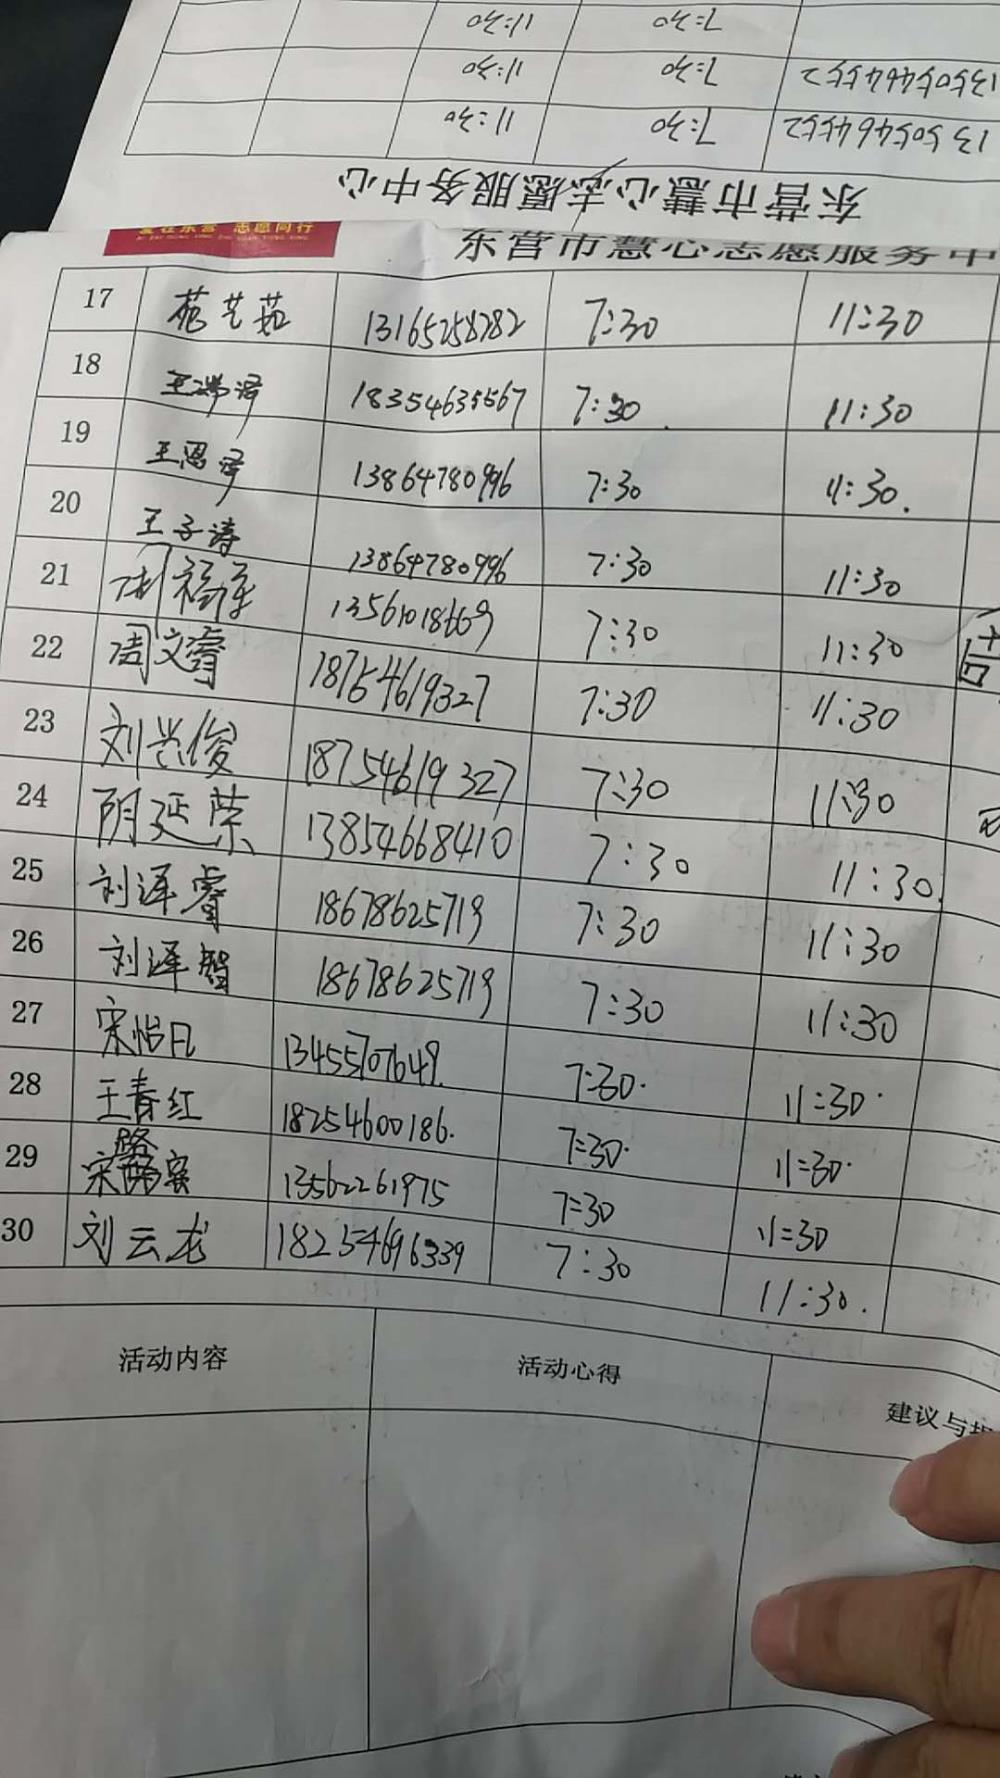 11:30 7:30
11:30 7:30 13505464552
11:30 7:30 13505464552
东营市慧心志愿服务中心
爱在东营 志愿同行
东营市慧心志愿服务中
17 苑艺茹 13165258282 7:30 11:30
18 王瑞泽 18354635567 7:30 11:30
19 王思泽 13864780996 7:30 11:30.
20 王子涛 13864780996 7:30 11:30
21 7:30 11:30
22 周文睿 18754619327 7:30 11:30
23 刘兴俊 18754619327 7:30 11:30
24 阴延荣 13854668410 7:30 11:30.
25 刘泽睿 18678625719 7:30 11:30
26 刘泽智 18678625719 7:30 11:30
27 宋怡凡 13455707649. 7:30. 11:30.
28 王春红 18254600186. 7:30. 11:30.
29 宋路宾 13562261975 7:30 11:30
30 刘云龙 18254696339 7:30 11:30.
活动内容 活动心得 建议与